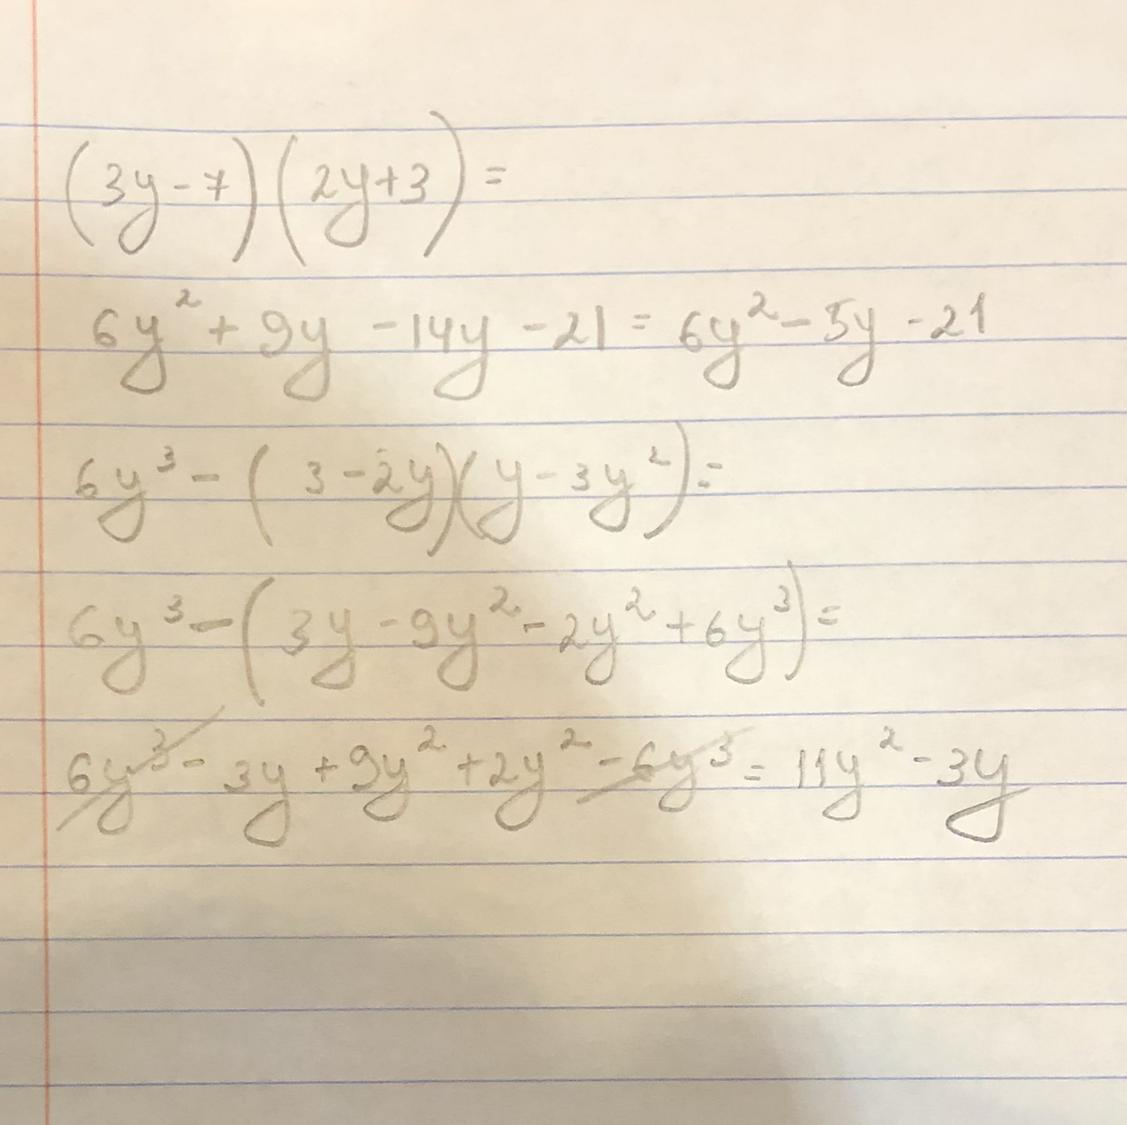 (3y-7)(2y+3)=
6y²+9y-14y-21=6y²-5y-21
6y³-(3-2y)(y-3y²)=
6y³-(3y-9y²-2y²+6y³)=
6y³-3y+9y²+2y²-6y³=11y²-3y